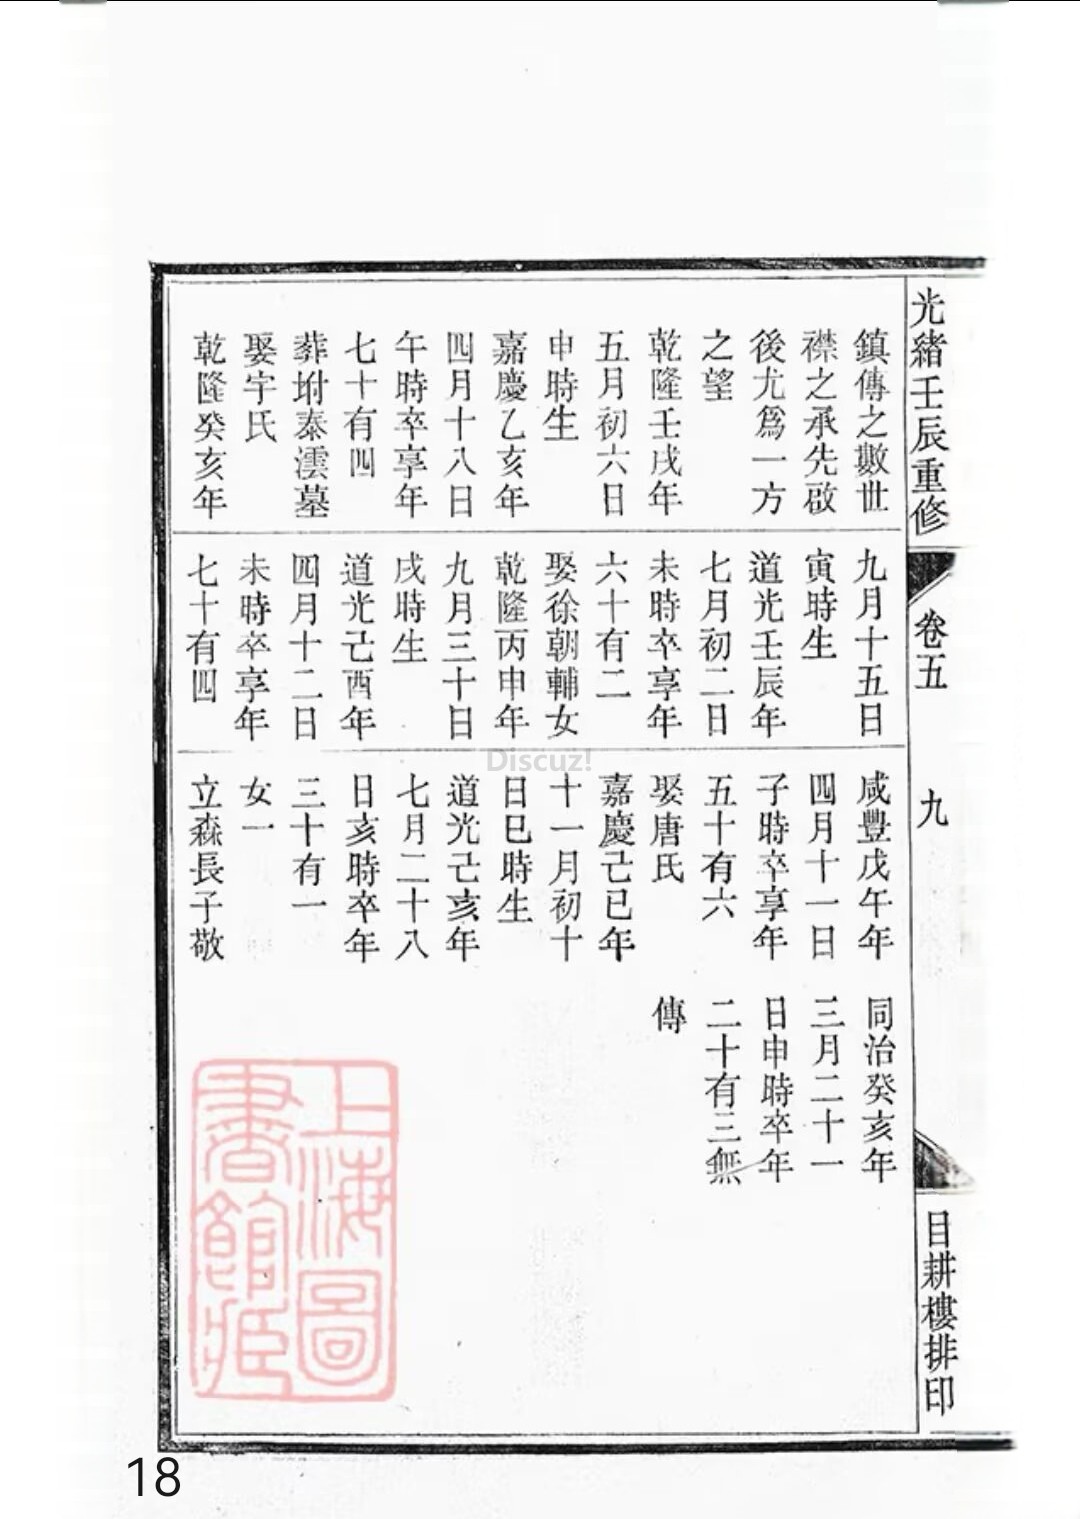 光緒壬辰重修
卷五
九
目耕樓排印
鎮傳之數世
襟之承先啟
後尤爲一方
之望
乾隆壬戌年
五月初六日
申時生
嘉慶乙亥年
四月十八日
午時卒享年
七十有四
葬坿泰澐墓
娶宇氏
乾隆癸亥年
九月十五日
寅時生
道光壬辰年
七月初二日
未時卒享年
六十有二
娶徐朝輔女
乾隆丙申年
九月三十日
戌時生
道光己酉年
四月十二日
未時卒享年
七十有四
咸豐戊午年
四月十一日
子時卒享年
五十有六
娶唐氏
嘉慶己巳年
十一月初十
日巳時生
道光己亥年
七月二十八
日亥時卒年
三十有一
女一
立森長子敬
同治癸亥年
三月二十一
日申時卒年
二十有三無
傳
上海圖
書館藏
Discuz!
18